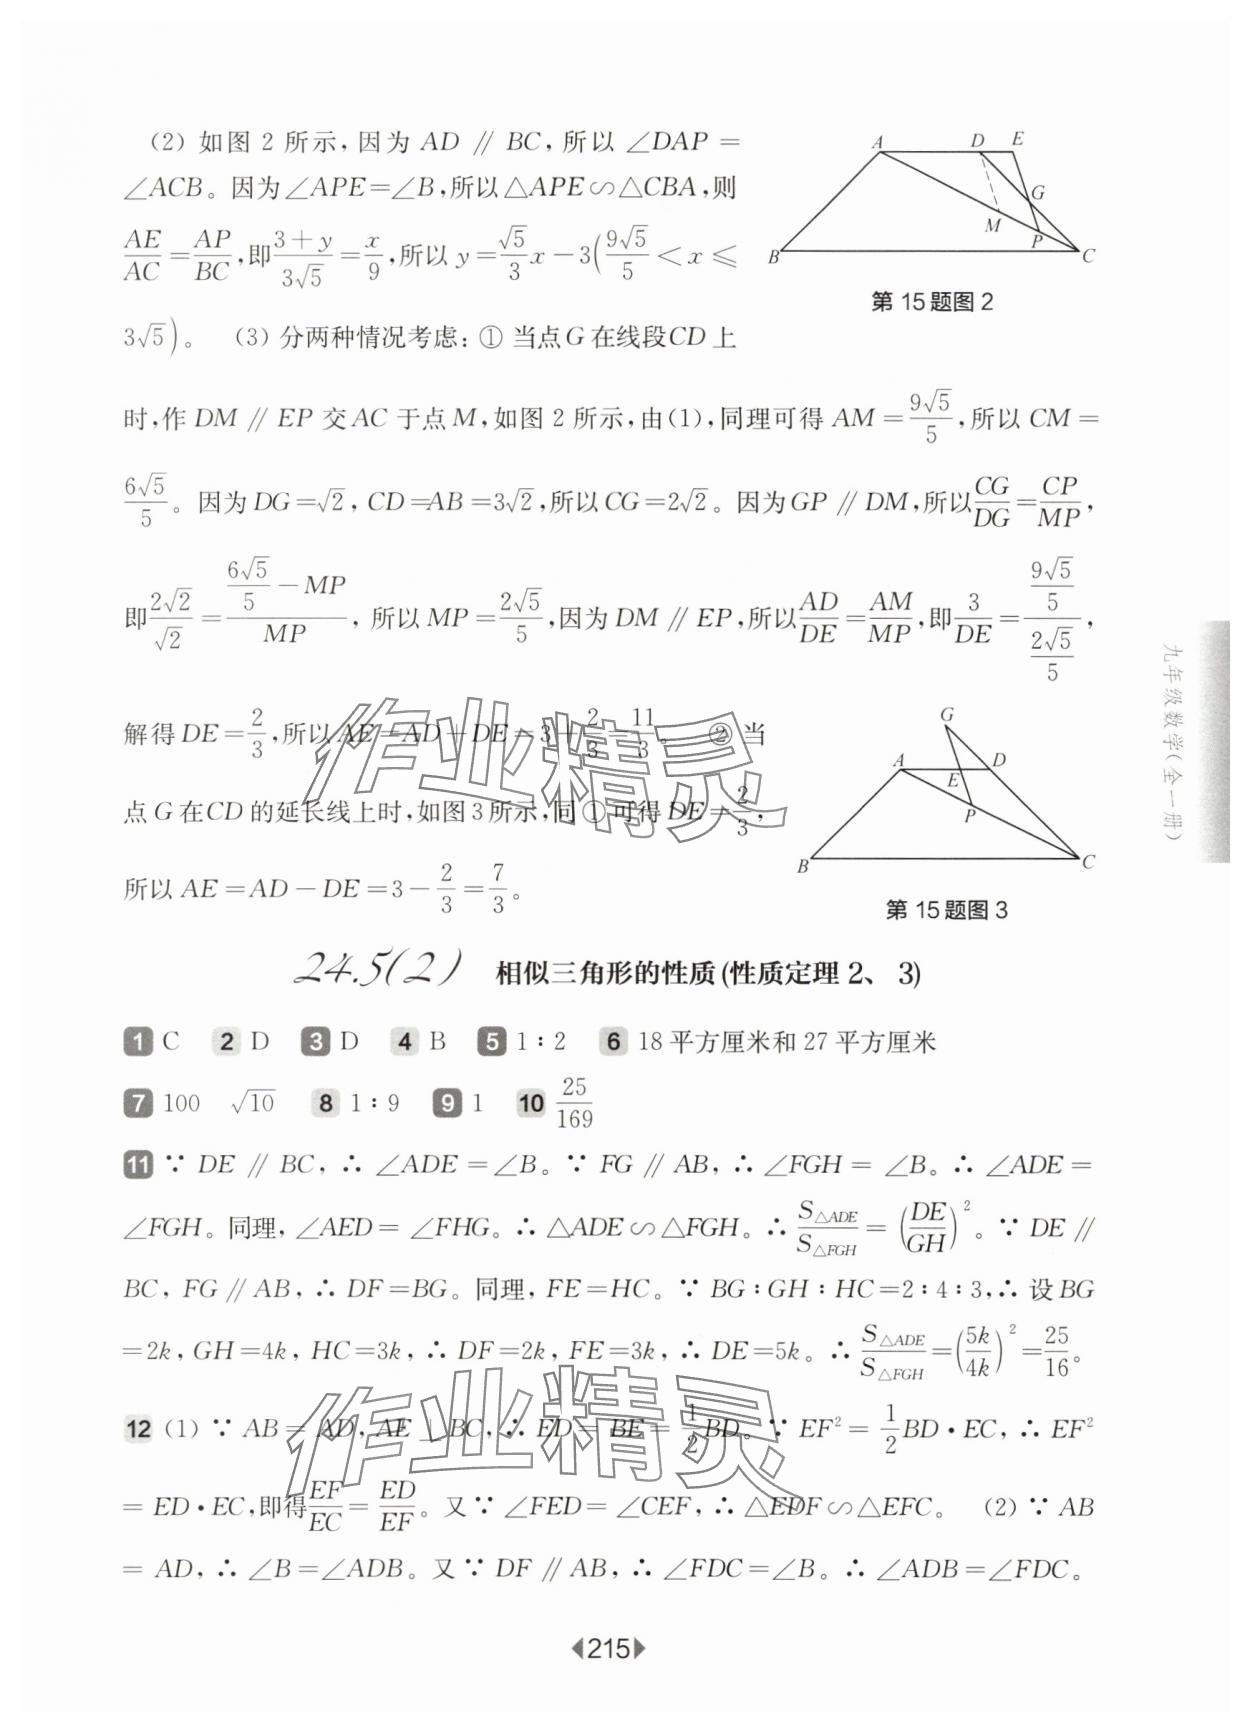 (2) 如图 2 所示，因为 AD ∥ BC，所以 ∠DAP =
∠ACB。因为∠APE=∠B，所以△APE∽△CBA，则
AE/AC = AP/BC，即 (3+y)/(3√5) = x/9，所以 y = (√5/3)x − 3(9√5/5 < x ⩽
3√5)。 (3) 分两种情况考虑：① 当点G在线段CD上
A D E G M P B C
第15题图2
时，作 DM ∥ EP 交 AC 于点 M，如图 2 所示，由(1)，同理可得 AM = 9√5/5，所以 CM =
6√5/5。因为 DG=√2，CD=AB=3√2，所以 CG=2√2。因为GP ∥ DM，所以 CG/DG = CP/MP，
即 2√2/√2 = (6√5/5 − MP)/MP，所以 MP = 2√5/5，因为 DM ∥ EP，所以 AD/DE = AM/MP，即 3/DE = (9√5/5)/(2√5/5)，
解得 DE = 2/3，所以 AE=AD+DE=3+2/3=11/3。 ② 当
点G在CD的延长线上时，如图3所示，同①可得DE=2/3，
所以 AE=AD−DE=3−2/3=7/3。
G A E D P B C
第15题图3
24.5(2) 相似三角形的性质(性质定理 2、3)
1 C 2 D 3 D 4 B 5 1∶2 6 18平方厘米和27平方厘米
7 100 √10 8 1∶9 9 1 10 25/169
11 ∵ DE ∥ BC，∴ ∠ADE = ∠B。∵ FG ∥ AB，∴ ∠FGH = ∠B。∴ ∠ADE =
∠FGH。同理，∠AED = ∠FHG。∴ △ADE∽△FGH。∴ S△ADE/S△FGH = (DE/GH)²。∵ DE ∥
BC，FG ∥ AB，∴ DF=BG。同理，FE=HC。∵ BG∶GH∶HC=2∶4∶3，∴ 设 BG
=2k，GH=4k，HC=3k，∴ DF=2k，FE=3k，∴ DE=5k。∴ S△ADE/S△FGH = (5k/4k)² = 25/16。
12 (1) ∵ AB = AD，AE ⊥ BC，∴ ED = BE = 1/2 BD。∵ EF² = 1/2 BD·EC，∴ EF²
= ED·EC，即得 EF/EC = ED/EF。又∵ ∠FED = ∠CEF，∴ △EDF∽△EFC。 (2) ∵ AB
= AD，∴ ∠B=∠ADB。又∵ DF ∥ AB，∴ ∠FDC=∠B。∴ ∠ADB=∠FDC。
215
九年级数学(全一册)
作业精灵
作业精灵